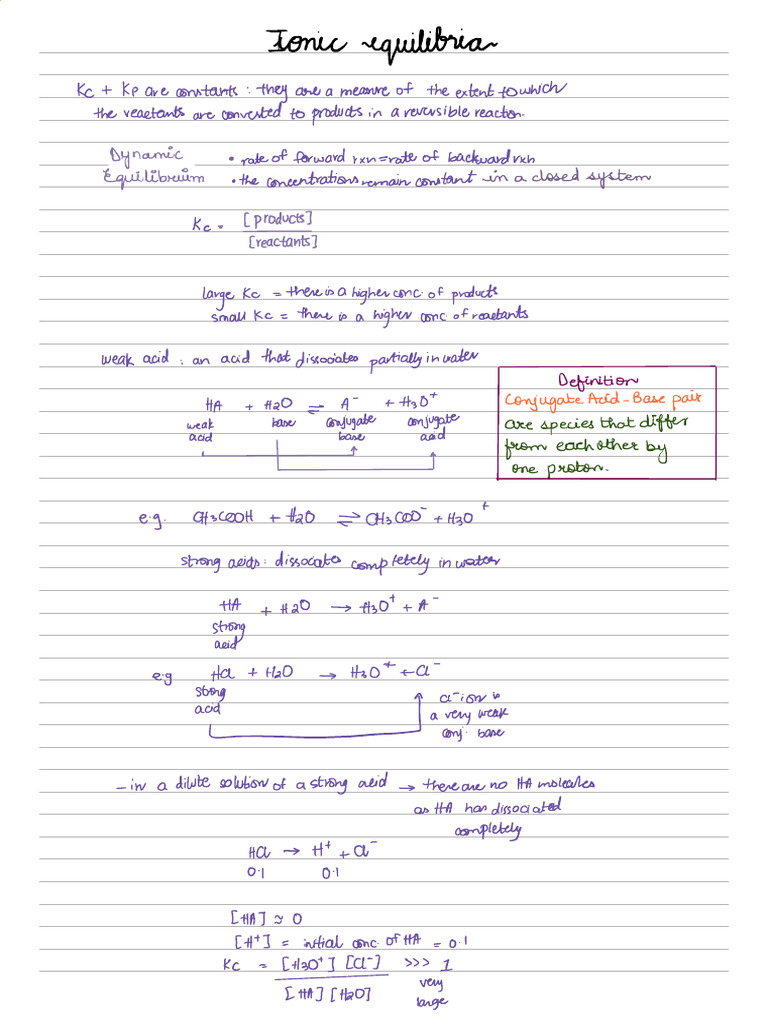 Ionic equilibria
Kc + Kp are constants : they are a measure of the extent to which
the reactants are converted to products in a reversible reaction.
Dynamic
Equilibrium
• rate of forward rxn = rate of backward rxn
• the concentrations remain constant in a closed system
Kc = [products]
[reactants]
large Kc = there is a higher conc. of products
small Kc = there is a higher conc of reactants
weak acid : an acid that dissociates partially in water
HA + H2O ⇌ A⁻ + H3O⁺
weak acid
base
conjugate base
conjugate acid
Definition
Conjugate Acid-Base pair
are species that differ
from each other by
one proton.
e.g. CH3COOH + H2O ⇌ CH3COO⁻ + H3O⁺
strong acids : dissociates completely in water
HA + H2O → H3O⁺ + A⁻
strong
acid
e.g HCl + H2O → H3O⁺ + Cl⁻
strong
acid
Cl⁻ ion is
a very weak
conj. base
– in a dilute solution of a strong acid → there are no HA molecules
as HA has dissociated
completely
HCl → H⁺ + Cl⁻
0.1 0.1
[HA] ≈ 0
[H⁺] = initial conc. of HA = 0.1
Kc = [H3O⁺] [Cl⁻] >>> 1
[HA] [H2O]
very
large